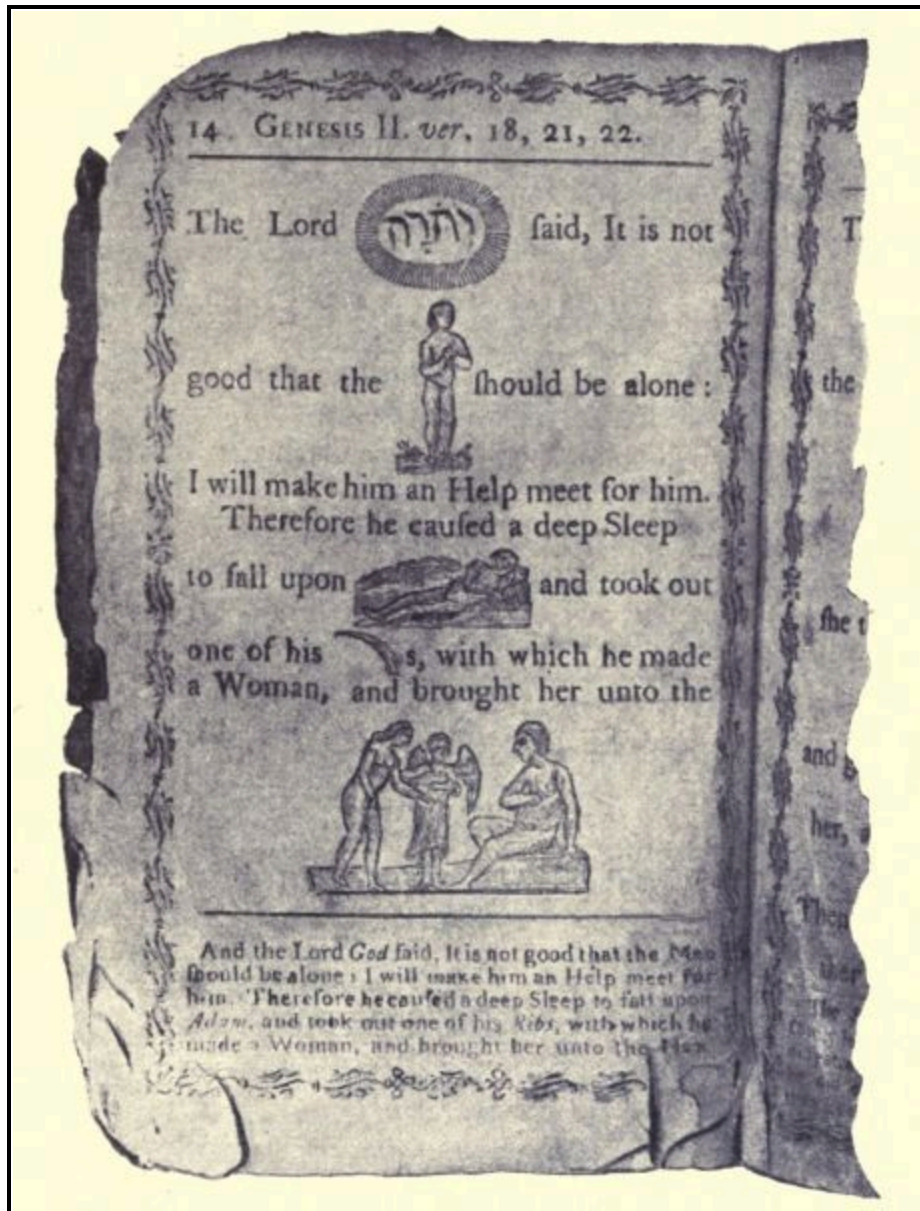 14 GENESIS II. ver. 18, 21, 22.
The Lord יְהֹוָה ſaid, It is not
good that the ſhould be alone :
I will make him an Help meet for him.
Therefore he cauſed a deep Sleep
to fall upon and took out
one of his s, with which he made
a Woman, and brought her unto the
And the Lord God ſaid, It is not good that the Man
ſhould be alone : I will make him an Help meet for
him. Therefore he cauſed a deep Sleep to fall upon
Adam, and took out one of his Ribs, with which he
made a Woman, and brought her unto the Man
T
the
ſhe t
and
her,
Then